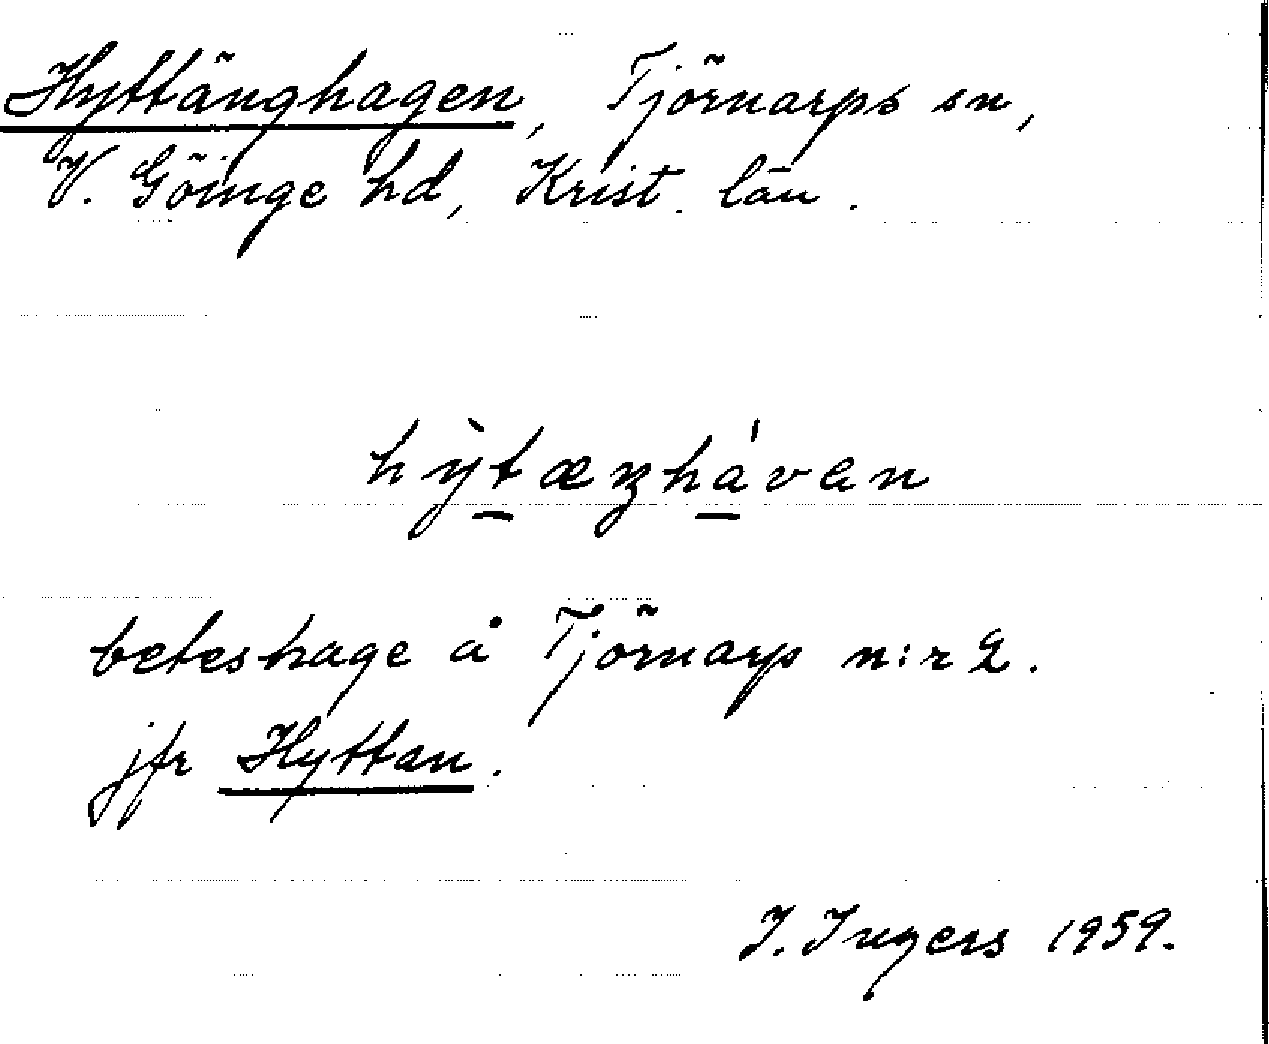 Hyttänghagen, Tjörnarps sn,
V. Göinge hd, Krist. län.
hỳtæŋhávan
beteshage å Tjörnarp n:r 2.
jfr Hyttan.
I. Ingers 1959.